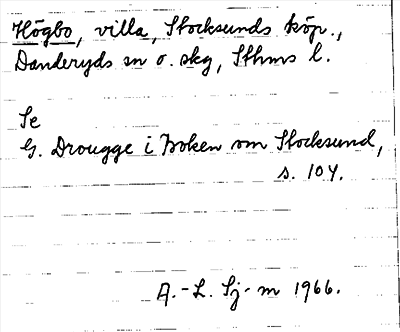 Högbo, villa, Stocksunds köp.,
Danderyds sn o. skg, Sthms l.
Se
G. Drougge i Boken om Stocksund,
s. 104.
A.-L. Sj-m 1966.